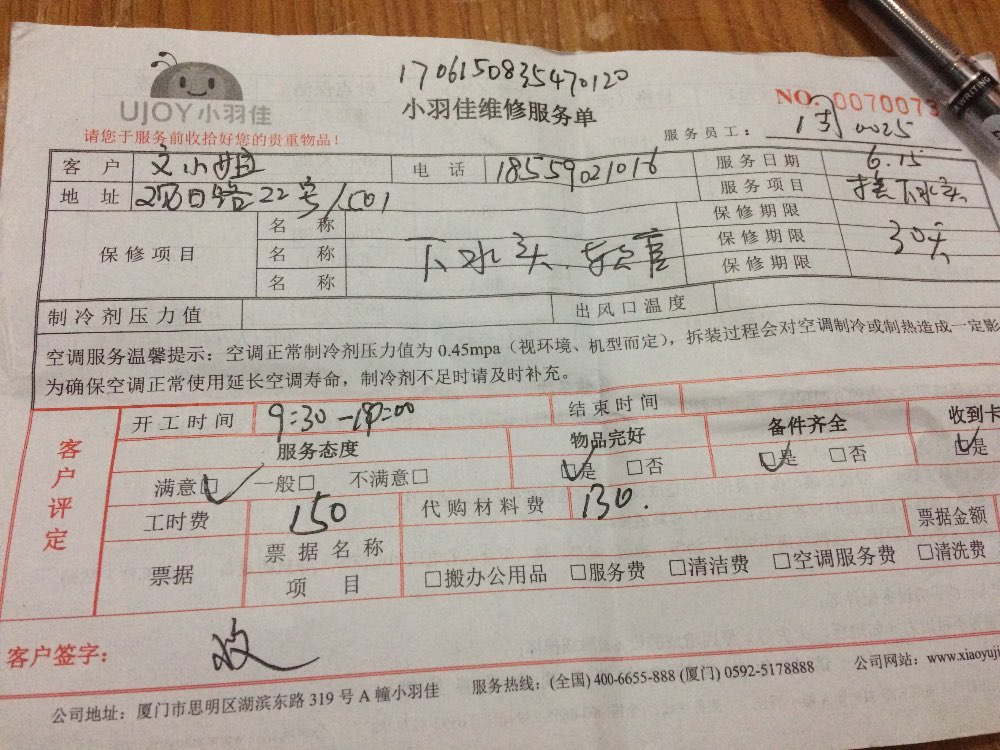 1706150835470120
UJOY小羽佳
小羽佳维修服务单
NO. 0070073
请您于服务前收拾好您的贵重物品！
服务员工： 0025
客 户 文小姐 电 话 18559021016 服务日期 6.15
地 址 22号/501 服务项目 接下水头
保修项目 名 称 保修期限
名 称 下水头 软管 保修期限 30天
名 称 保修期限
制冷剂压力值 出风口温度
空调服务温馨提示：空调正常制冷剂压力值为 0.45mpa（视环境、机型而定），拆装过程会对空调制冷或制热造成一定影
为确保空调正常使用延长空调寿命，制冷剂不足时请及时补充。
客户评定
开工时间 9:30 结束时间
服务态度 物品完好 备件齐全 收到卡
满意□ 一般□ 不满意□ □是 □否 □是 □否 □是
工时费 150 代购材料费 130.
票据金额
票据 票据名称
项 目 □搬办公用品 □服务费 □清洁费 □空调服务费 □清洗费
客户签字：
公司地址：厦门市思明区湖滨东路 319 号 A 幢小羽佳 服务热线：(全国) 400-6655-888 (厦门) 0592-5178888 公司网站：www.xiaoyuji